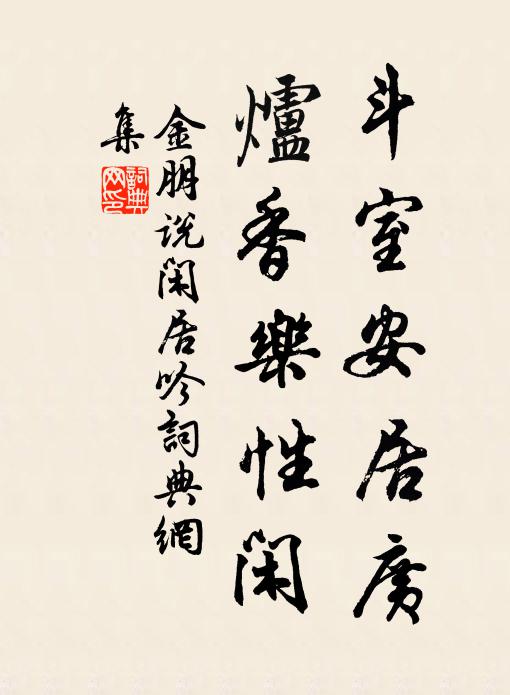 斗室安居廣
爐香樂性閑
金朋說閑居吟詞典網
集
詞典
网印